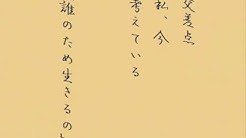 交差点
私、今
考えている
誰のため生きるの